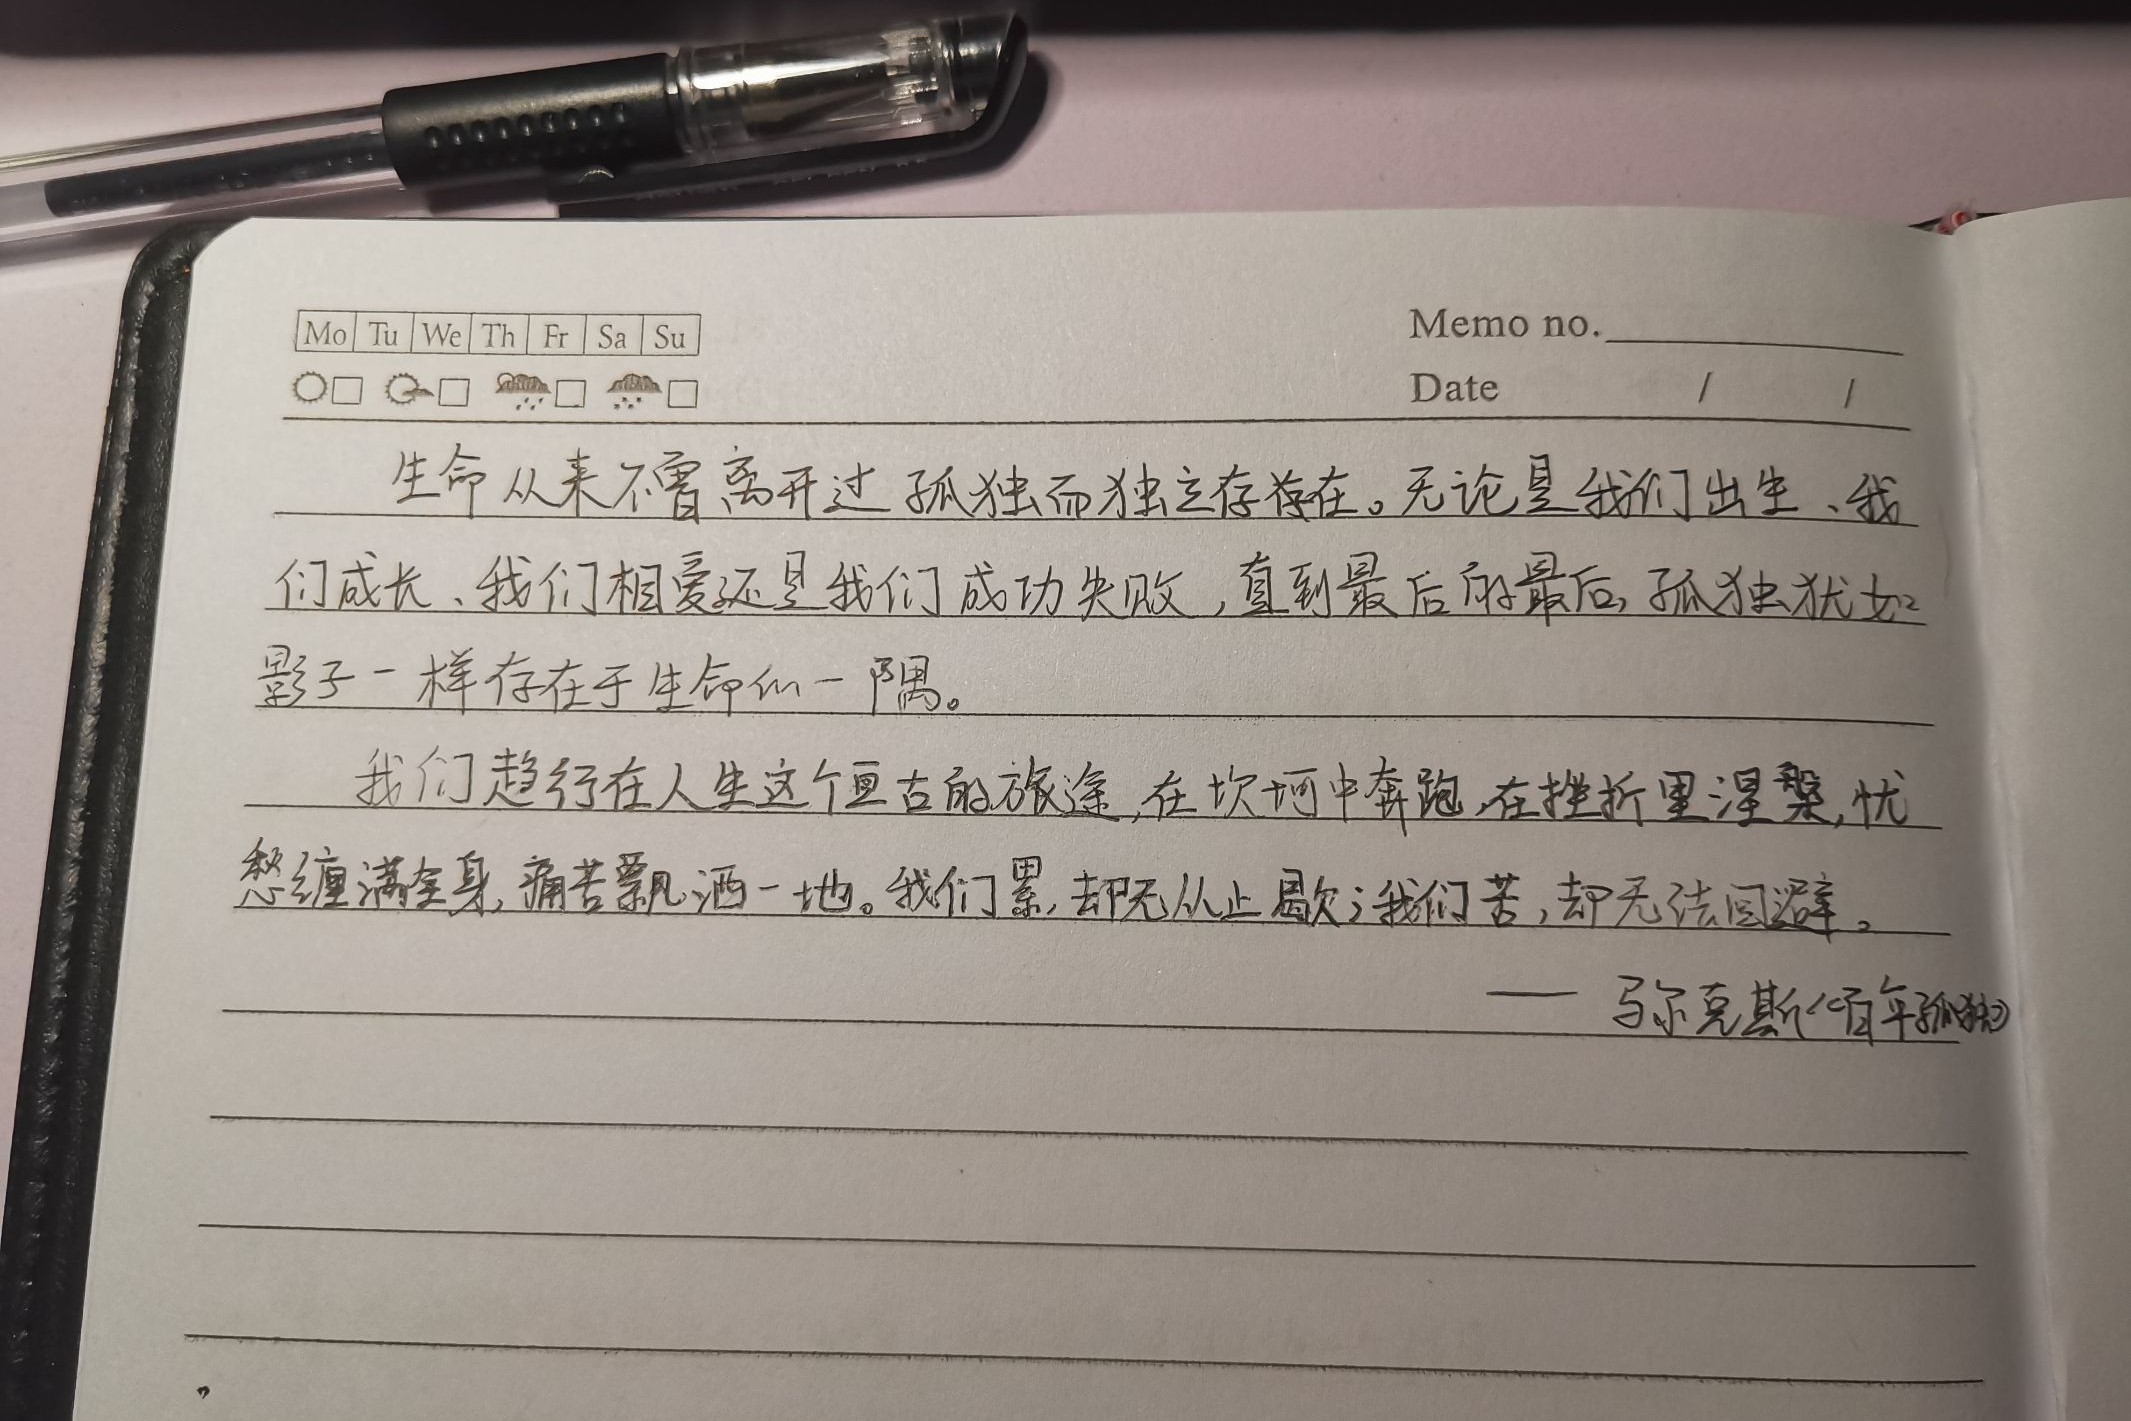 Mo Tu We Th Fr Sa Su
Memo no.
Date / /
生命从来不曾离开过孤独而独立存存在。无论是我们出生、我
们成长、我们相爱还是我们成功失败,直到最后的最后,孤独犹如
影子一样存在于生命的一隅。
我们趋行在人生这个亘古的旅途,在坎坷中奔跑,在挫折里涅槃,忧
愁缠满全身,痛苦飘洒一地。我们累,却无从止歇;我们苦,却无法回避。
——马尔克斯《百年孤独》